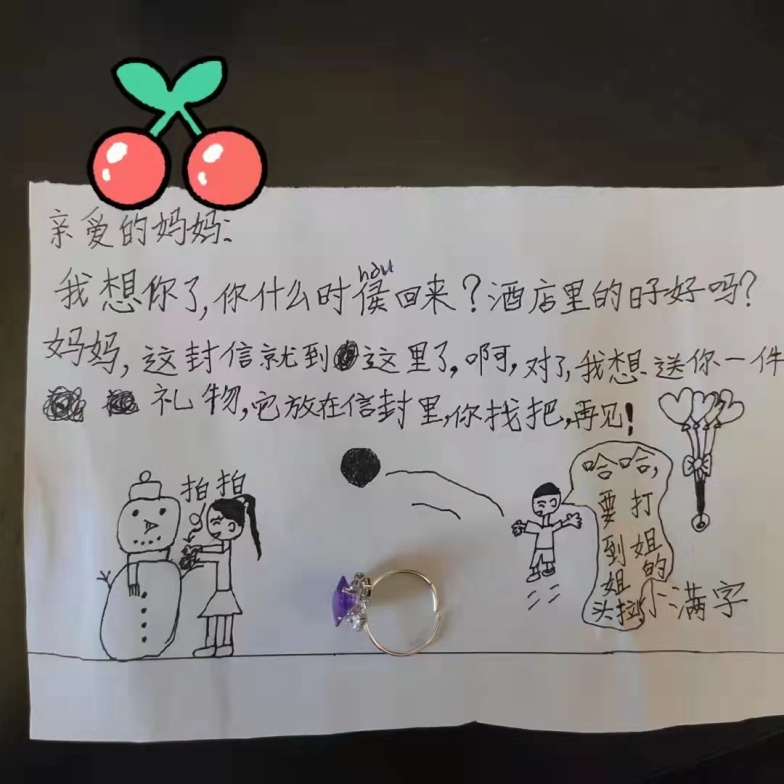 亲爱的妈妈:
hòu
我想你了,你什么时候回来?酒店里的日子好吗?
妈妈,这封信就到这里了,啊,对了,我想送你一件
礼物,它放在信封里,你找把,再见!
拍拍
哈哈,
要打
到姐
姐的
头拉
小满字